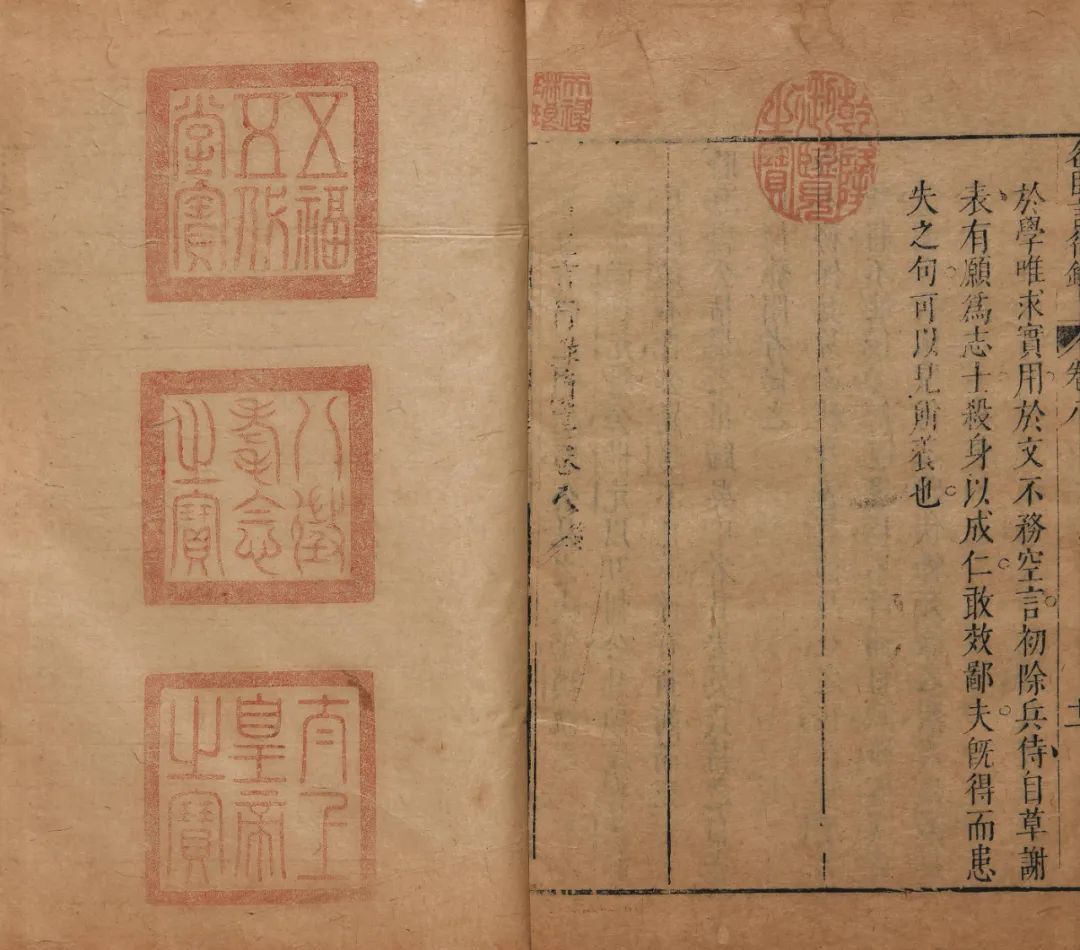 卷八
於學唯求實用於文不務空言初除兵侍自草謝
表有願為志士殺身以成仁敢效鄙夫既得而患
失之句可以見所養也
乾隆御覽之寶
天祿琳琅
五福五代堂寶
八徵耄念之寶
太上皇帝之寶